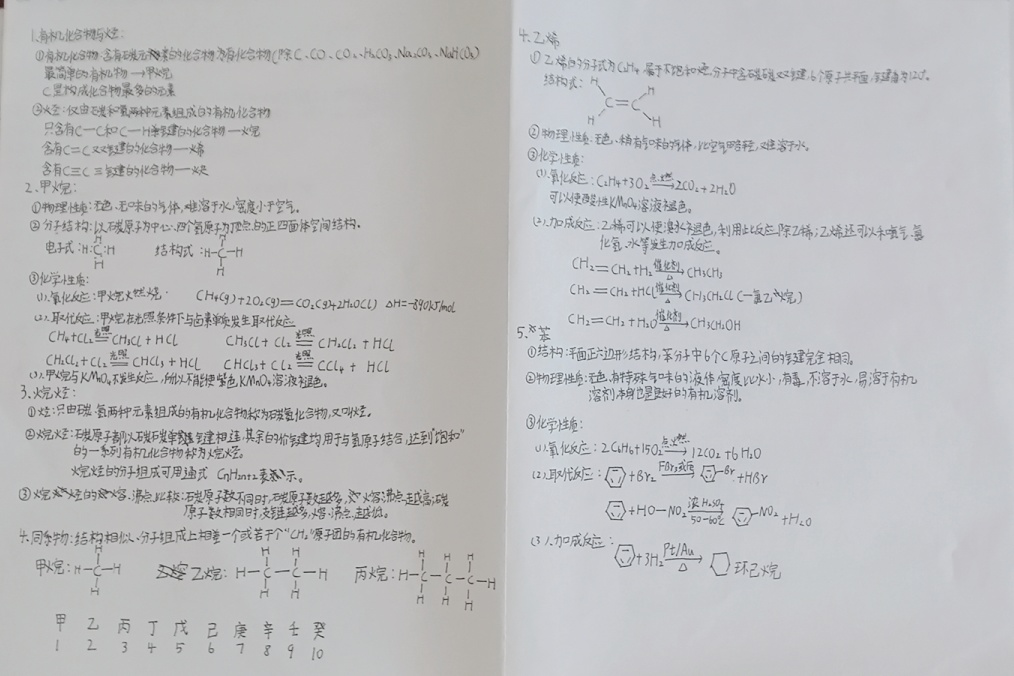 1.有机化合物与烃:
①有机化合物:含有碳元素的化合物为有化合物(除C、CO、CO₂、H₂CO₃、Na₂CO₃、NaHCO₃)
最简单的有机物→甲烷
C是构成化合物最多的元素
②烃:仅由碳和氢两种元素组成的有机化合物
只含有C—C和C—H单键的化合物—烷
含有C=C双键的化合物—烯
含有C≡C三键的化合物—炔
2、甲烷:
①物理性质:无色、无味的气体,难溶于水,密度小于空气。
②分子结构:以碳原子为中心、四个氢原子为顶点的正四面体空间结构。
电子式: H:C:H 结构式: H—C—H
③化学性质:
(1).氧化反应:甲烷燃烧. CH₄(g)+2O₂(g)=CO₂(g)+2H₂O(l) ΔH=-890kJ/mol
(2).取代反应:甲烷在光照条件下与卤素单质发生取代反应
CH₄+Cl₂ 光照 CH₃Cl+HCl CH₃Cl+Cl₂ 光照 CH₂Cl₂+HCl
CH₂Cl₂+Cl₂ 光照 CHCl₃+HCl CHCl₃+Cl₂ 光照 CCl₄+HCl
(3).甲烷与KMnO₄不发生反应,所以不能使紫色KMnO₄溶液褪色。
3、烷烃:
①烃:只由碳.氢两种元素组成的有机化合物称为碳氢化合物,又叫烃。
②烷烃:碳原子都以碳碳单键相连,其余的价键均用于与氢原子结合,达到“饱和”
的一系列有机化合物称为烷烃。
烷烃的分子组成可用通式 CnH2n+2表示。
③烷烃的熔、沸点比较:碳原子数不同时,碳原子数越多,熔沸点越高;碳
原子数相同时,支链越多,熔、沸点越低。
4.同系物:结构相似、分子组成上相差一个或若干个“CH₂”原子团的有机化合物。
甲烷: H—C—H 乙烷: H—C—C—H 丙烷: H—C—C—C—H
甲 乙 丙 丁 戊 己 庚 辛 壬 癸
1 2 3 4 5 6 7 8 9 10
4.乙烯
①乙烯的分子式为C₂H₄,属于不饱和烃,分子中含碳碳双键,6个原子共平面,键角为120°。
结构式:
H H
C=C
H H
②物理性质:无色、稍有气味的气体,比空气略轻,难溶于水。
③化学性质:
(1).氧化反应:C₂H₄+3O₂ 点燃→ 2CO₂+2H₂O
可以使酸性KMnO₄溶液褪色。
(2).加成反应:乙烯可以使溴水褪色,利用此反应除乙烯;乙烯还可以和氢气、氯
化氢、水等发生加成反应。
CH₂=CH₂+H₂ 催化剂 △→ CH₃CH₃
CH₂=CH₂+HCl 催化剂 △→ CH₃CH₂Cl (一氯乙烷)
CH₂=CH₂+H₂O 催化剂 △→ CH₃CH₂OH
5.苯
①结构:平面正六边形结构,苯分子中6个C原子之间的键完全相同。
②物理性质:无色,有特殊气味的液体,密度比水小,有毒,不溶于水,易溶于有机
溶剂,本身也是良好的有机溶剂。
③化学性质:
(1).氧化反应:2C₆H₆+15O₂ 点燃→ 12CO₂+6H₂O
(2).取代反应: +Br₂ FBr₃或Fe→ —Br+HBr
+HO—NO₂ 浓H₂SO₄ 50-60℃→ —NO₂+H₂O
(3).加成反应: +3H₂ Pt/Au △→ 环己烷